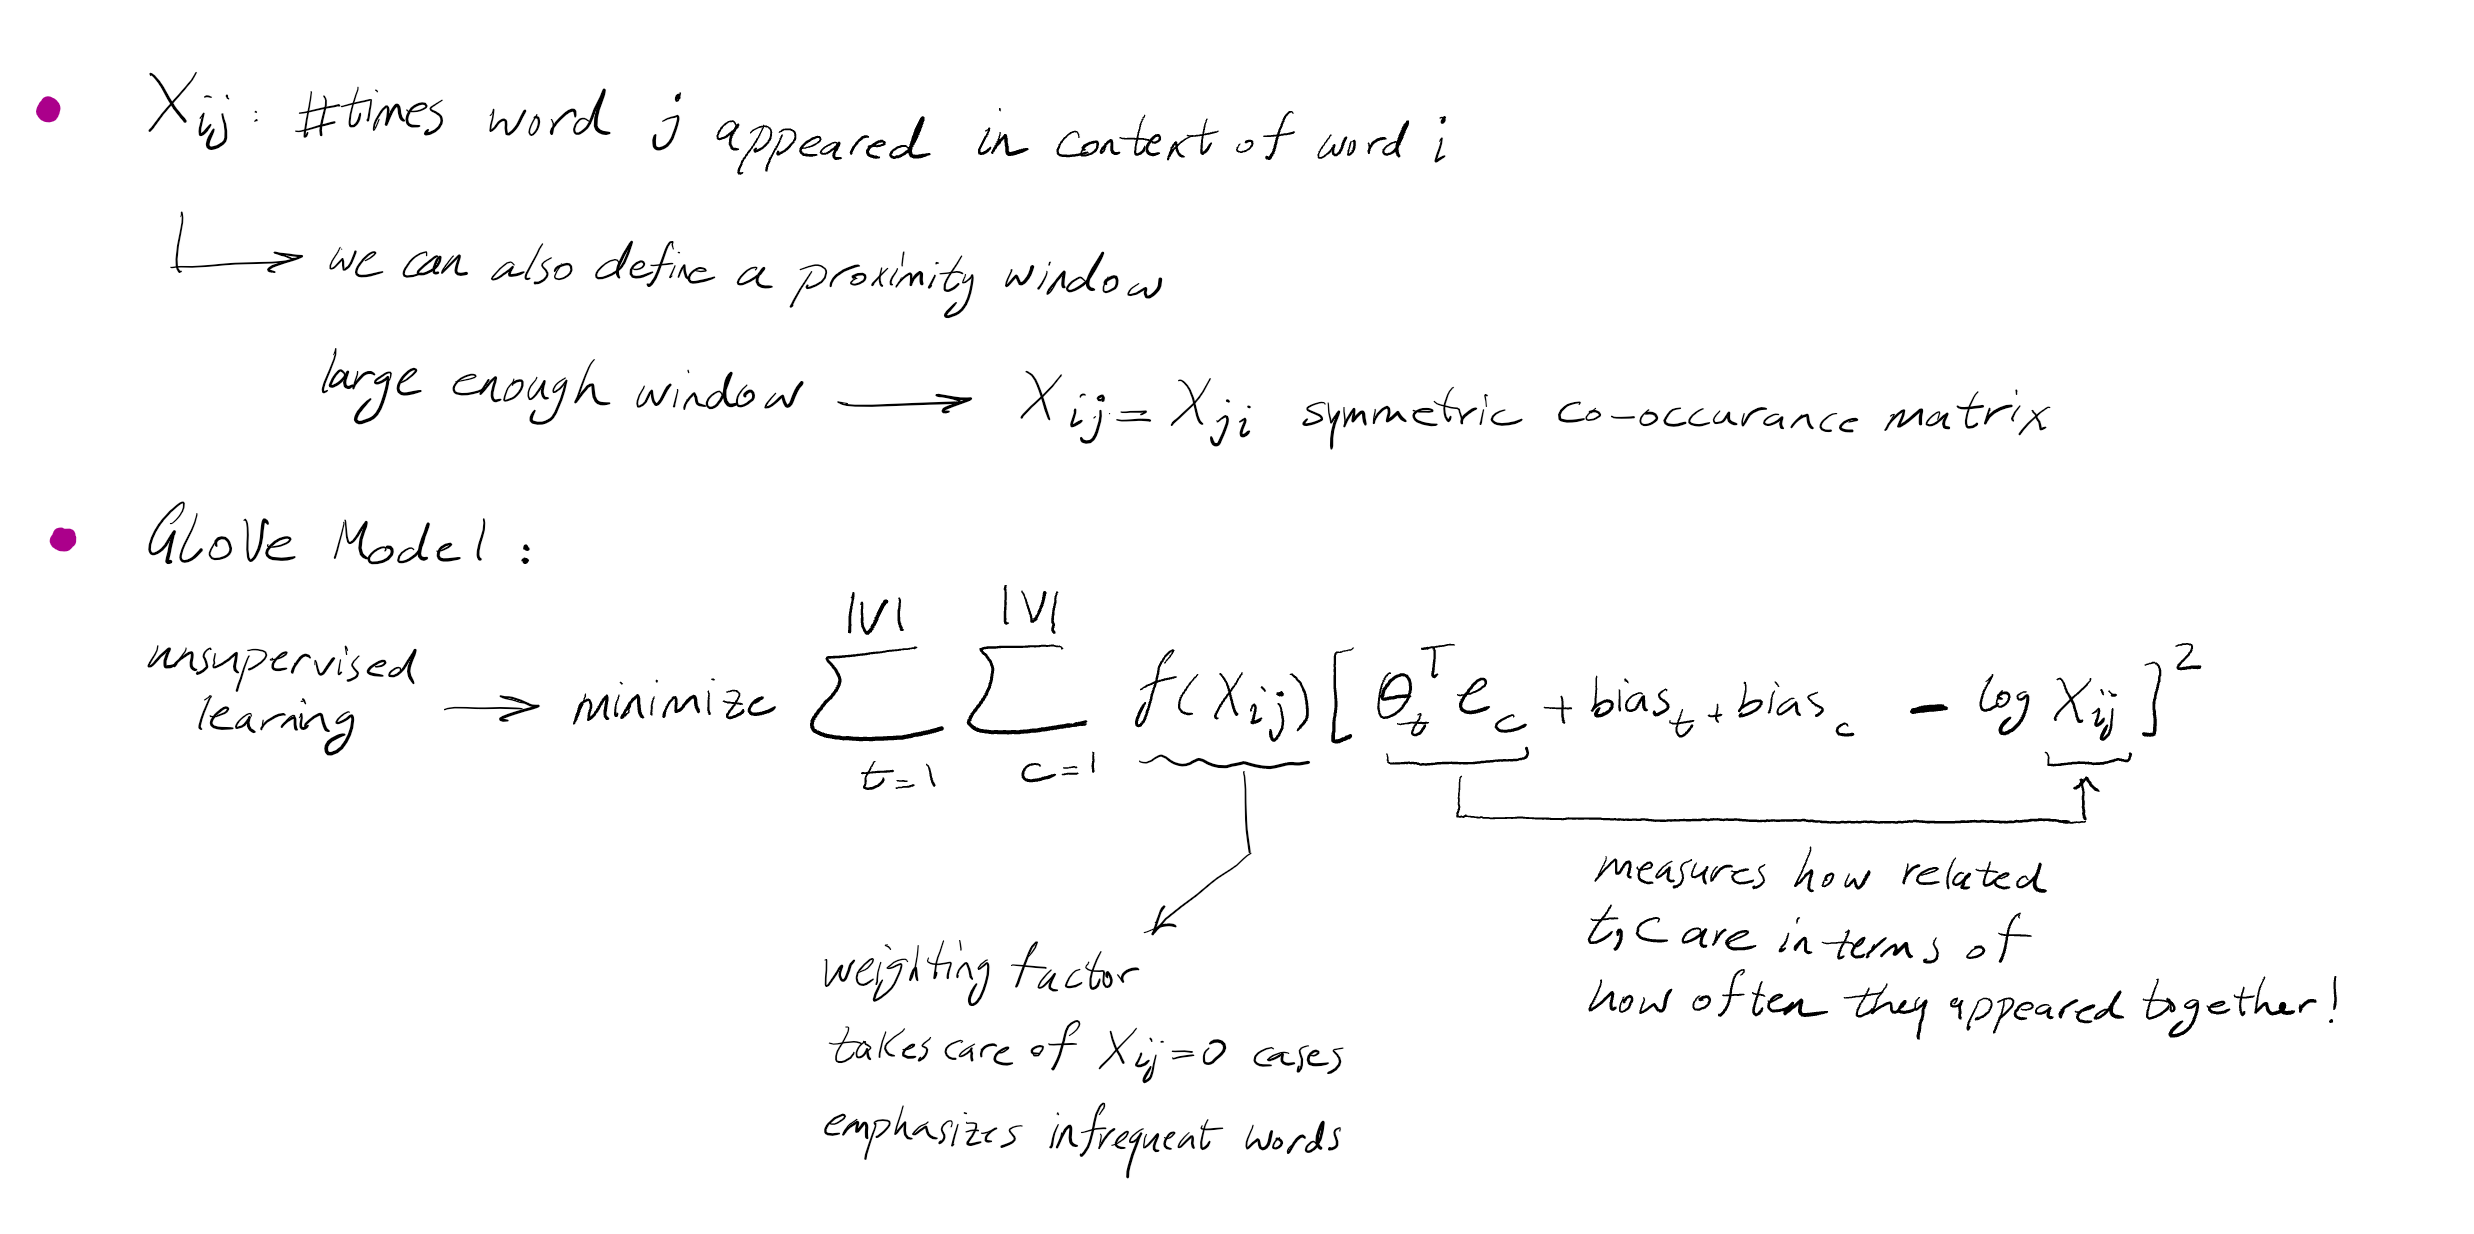 Xij : #times word j appeared in context of word i
we can also define a proximity window
large enough window → Xij = Xji symmetric co-occurance matrix
GloVe Model :
unsupervised learning → minimize ∑_{t=1}^{|V|} ∑_{c=1}^{|V|} f(Xij) [ θ_t^T e_c + bias_t + bias_c - log Xij ]^2
weighting factor
takes care of Xij=0 cases
emphasizes infrequent words
measures how related
t,c are in terms of
how often they appeared together!